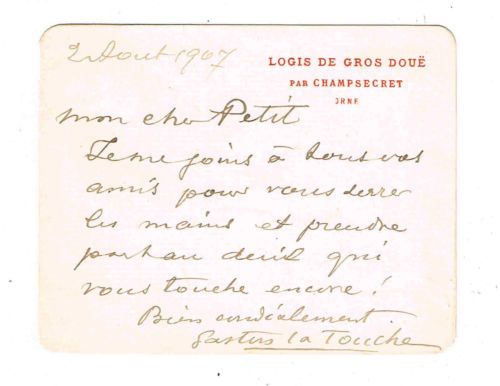 2 Aout 1907
LOGIS DE GROS DOUË
PAR CHAMPSECRET
ORNE
mon cher Petit
Je me joins à tous vos
amis pour vous serrer
les mains et prendre
part au deuil qui
vous touche encore !
Bien cordialement
Gaston La Touche